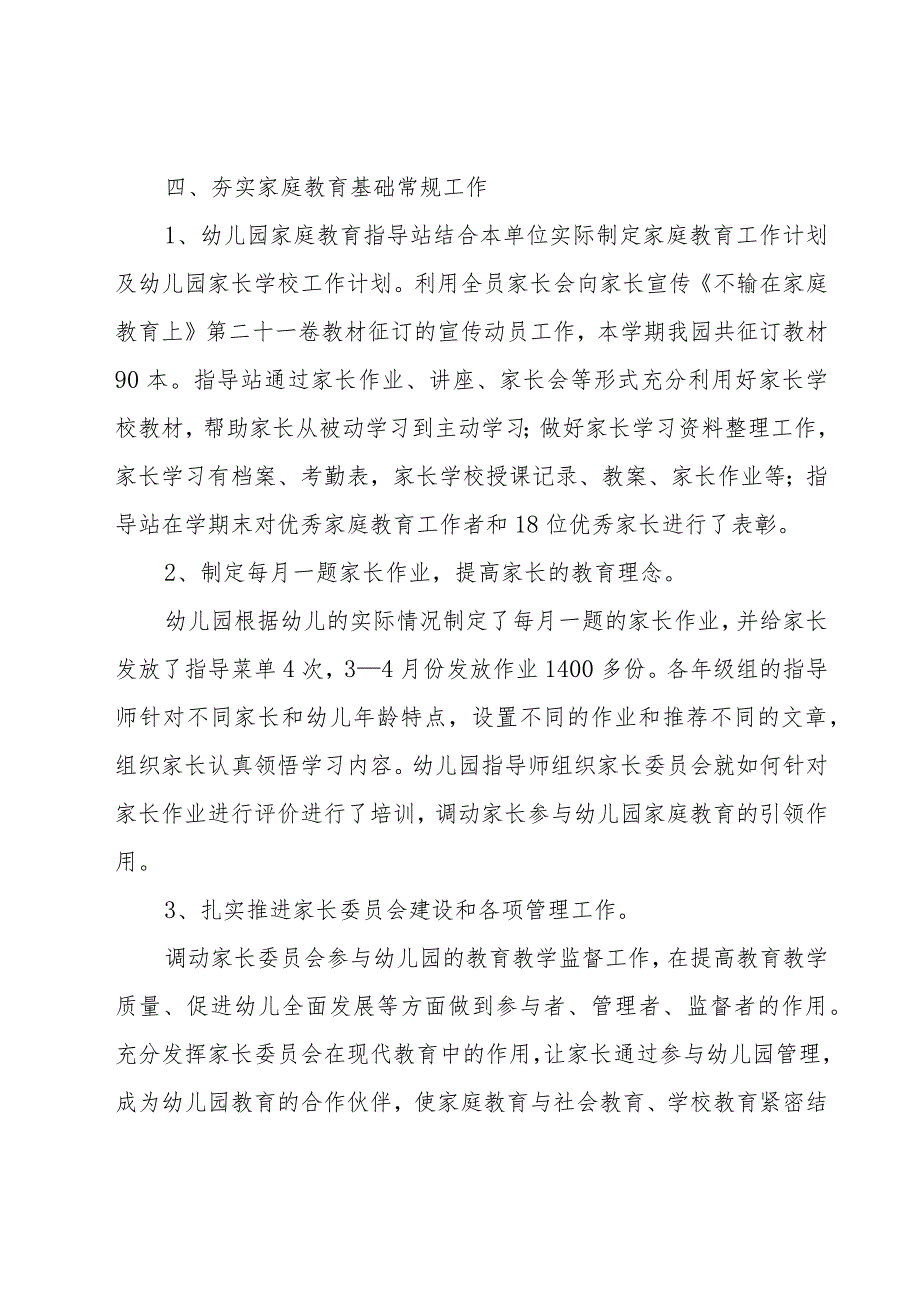 四、夯实家庭教育基础常规工作
1、幼儿园家庭教育指导站结合本单位实际制定家庭教育工作计划
及幼儿园家长学校工作计划。利用全员家长会向家长宣传《不输在家庭
教育上》第二十一卷教材征订的宣传动员工作，本学期我园共征订教材
90 本。指导站通过家长作业、讲座、家长会等形式充分利用好家长学
校教材，帮助家长从被动学习到主动学习；做好家长学习资料整理工作，
家长学习有档案、考勤表，家长学校授课记录、教案、家长作业等；指
导站在学期末对优秀家庭教育工作者和 18 位优秀家长进行了表彰。
2、制定每月一题家长作业，提高家长的教育理念。
幼儿园根据幼儿的实际情况制定了每月一题的家长作业，并给家长
发放了指导菜单 4 次，3—4 月份发放作业 1400 多份。各年级组的指导
师针对不同家长和幼儿年龄特点，设置不同的作业和推荐不同的文章，
组织家长认真领悟学习内容。幼儿园指导师组织家长委员会就如何针对
家长作业进行评价进行了培训，调动家长参与幼儿园家庭教育的引领作
用。
3、扎实推进家长委员会建设和各项管理工作。
调动家长委员会参与幼儿园的教育教学监督工作，在提高教育教学
质量、促进幼儿全面发展等方面做到参与者、管理者、监督者的作用。
充分发挥家长委员会在现代教育中的作用，让家长通过参与幼儿园管理，
成为幼儿园教育的合作伙伴，使家庭教育与社会教育、学校教育紧密结